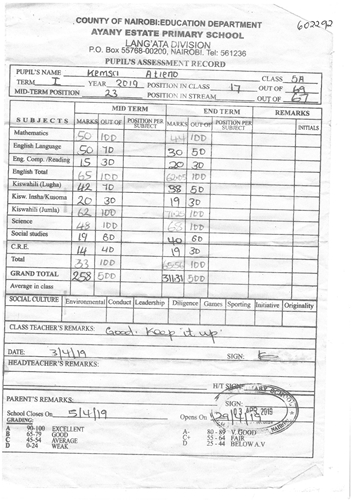 602292
COUNTY OF NAIROBI:EDUCATION DEPARTMENT
AYANY ESTATE PRIMARY SCHOOL
LANG'ATA DIVISION
P.O. Box 55768-00200, NAIROBI. Tel: 561236
PUPIL'S ASSESSMENT RECORD
PUPIL'S NAME Kemsa Atieno CLASS 5A
TERM I YEAR 2019 POSITION IN CLASS 17 OUT OF 69
MID-TERM POSITION 23 POSITION IN STREAM OUT OF 67
MID TERM END TERM REMARKS
SUBJECTS MARKS OUT OF POSITION PER SUBJECT MARKS OUT OF POSITION PER SUBJECT INITIALS
Mathematics 50 100 100
English Language 50 70 30 50
Eng. Comp. /Reading 15 30 20 30
English Total 65 100 100
Kiswahili (Lugha) 42 70 38 50
Kisw. Insha/Kusoma 20 30 19 30
Kiswahili (Jumla) 62 100 100
Science 48 100 100
Social studies 19 60 40 60
C.R.E. 14 40 19 30
Total 33 100 100
GRAND TOTAL 258 500 500
Average in class
SOCIAL CULTURE Environmental Conduct Leadership Diligence Games Sporting Initiative Originality
CLASS TEACHER'S REMARKS: Good. Keep it up
DATE: 3/4/19 SIGN:
HEADTEACHER'S REMARKS:
H/T SIGN
PARENT'S REMARKS: SIGN
School Closes On 5/4/19 Opens On 29/4/19
03 APR 2019
GRADING:
A 90-100 EXCELLENT A- 80-89 V. GOOD
B 65-79 GOOD C+ 55-64 FAIR
C 45-54 AVERAGE D 25-44 BELOW A.V
D 0-24 WEAK